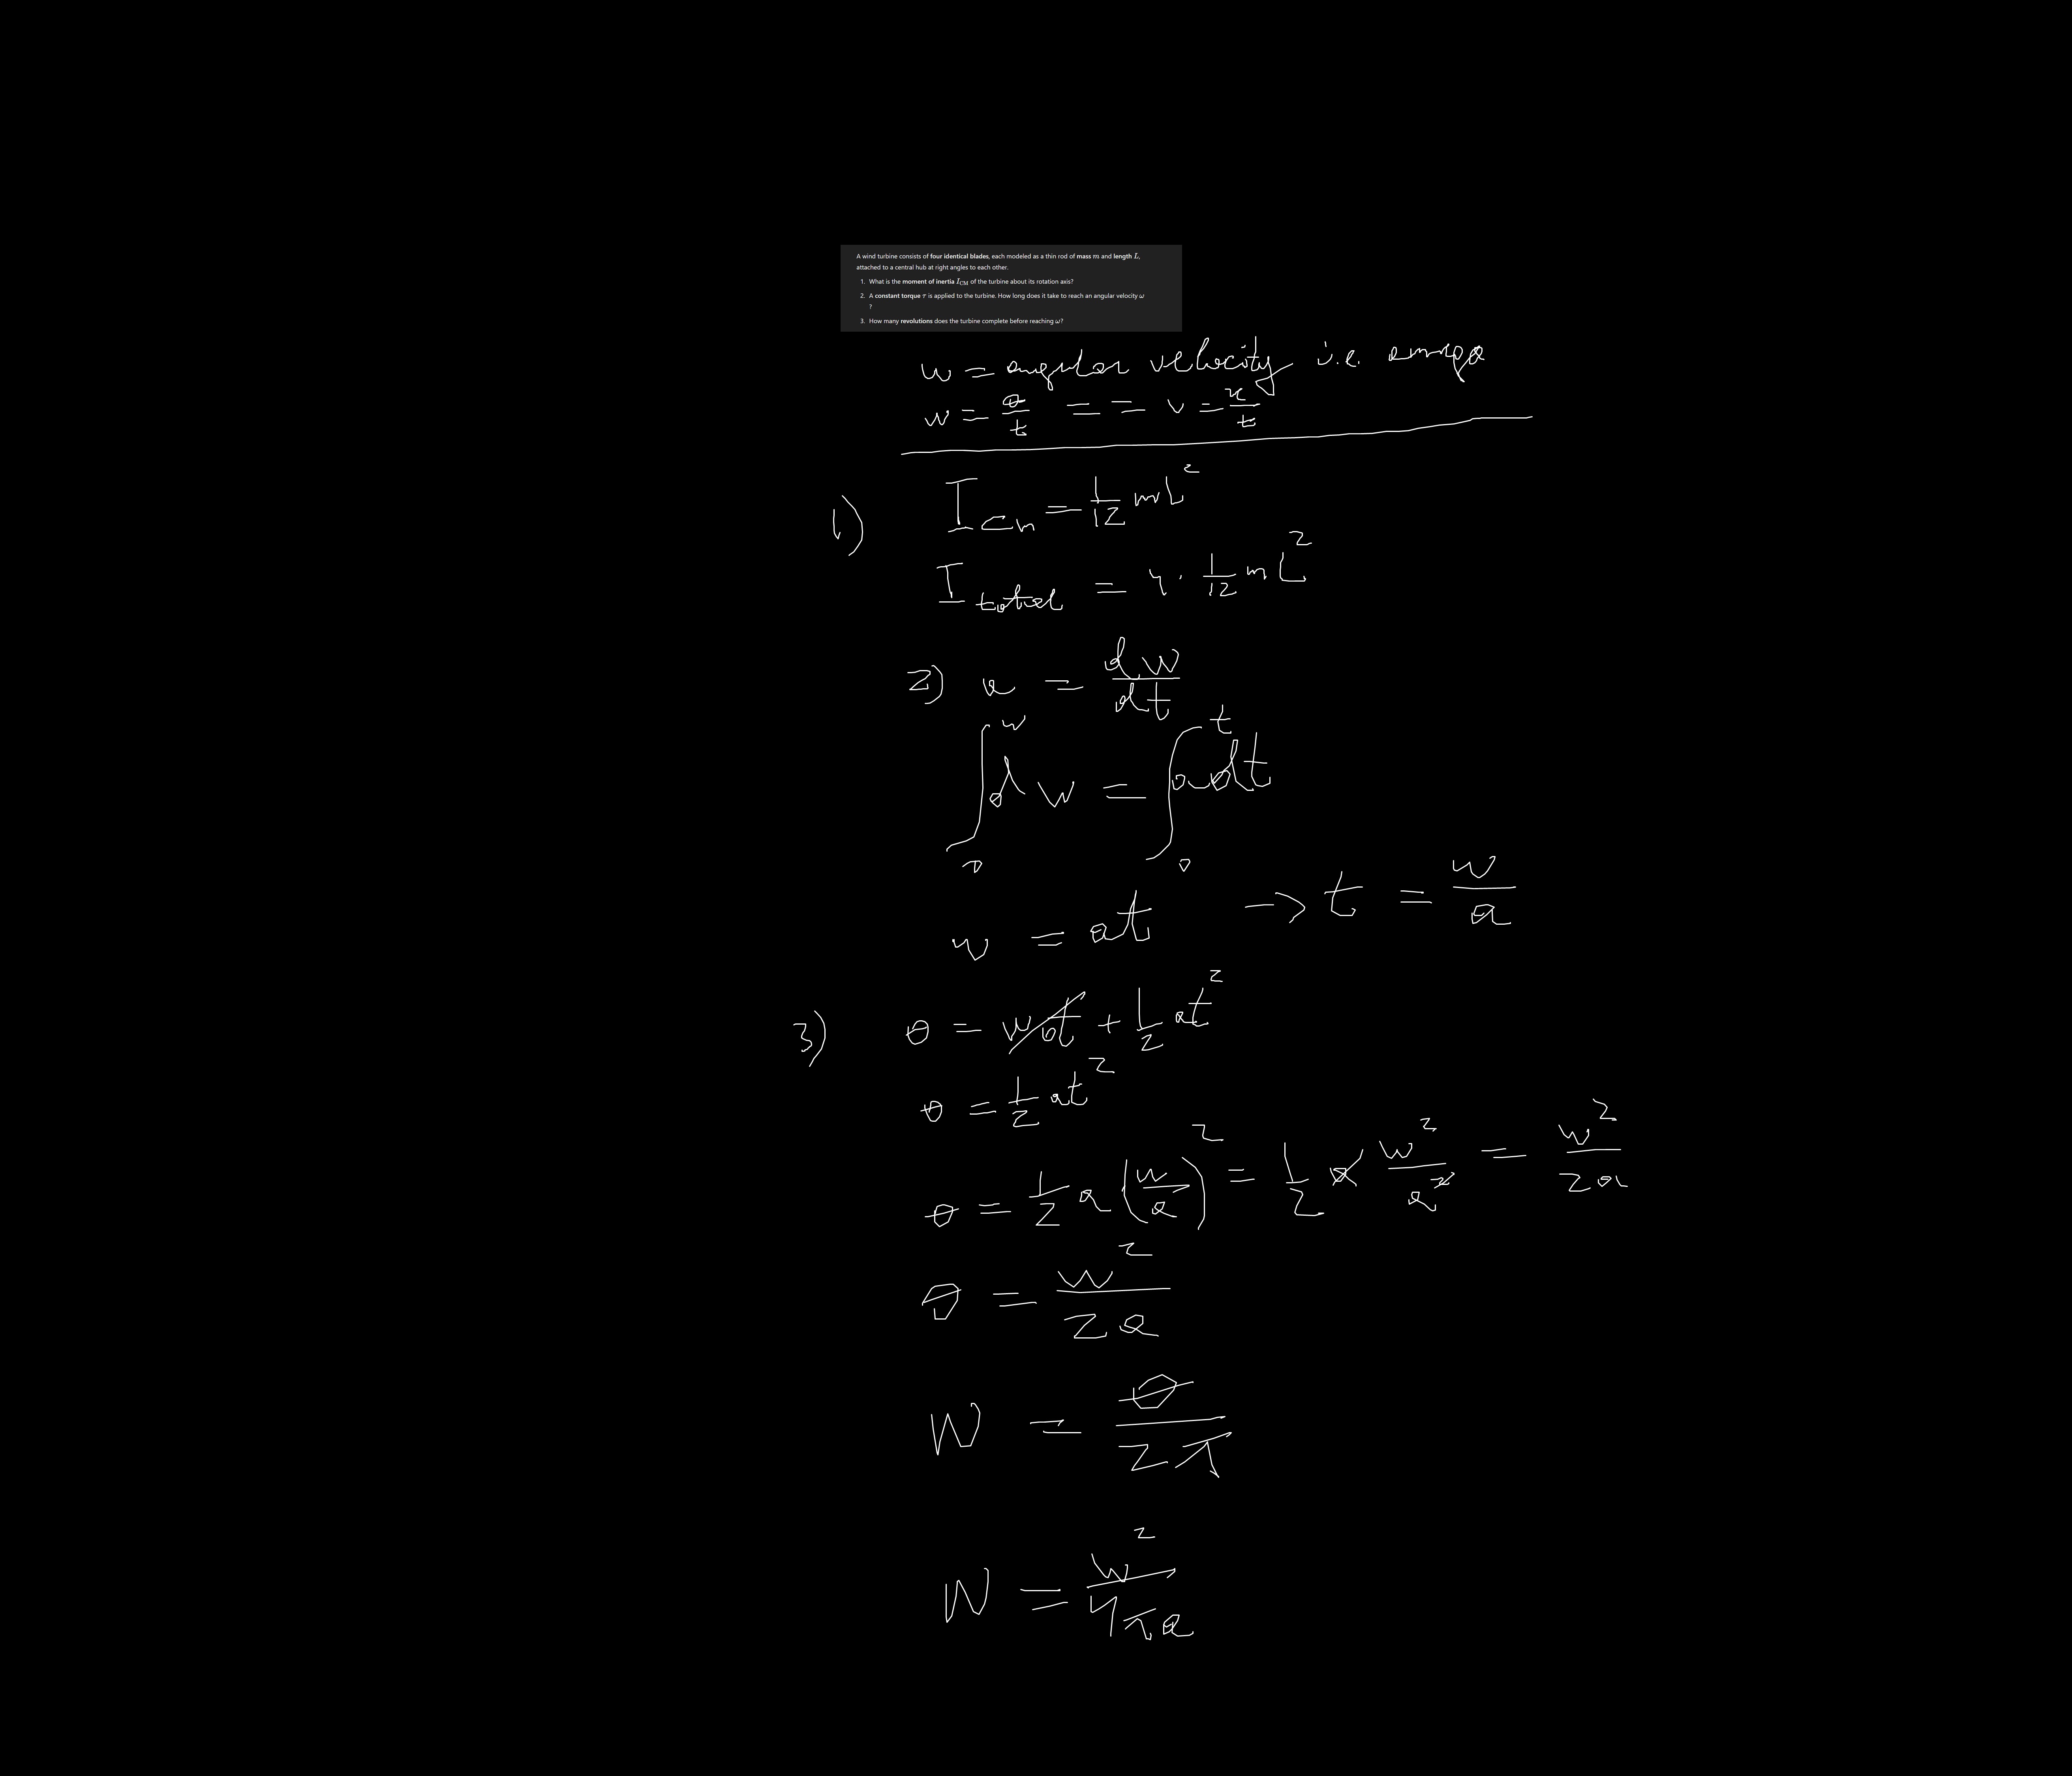 A wind turbine consists of four identical blades, each modeled as a thin rod of mass m and length L,
attached to a central hub at right angles to each other.
1. What is the moment of inertia I_CM of the turbine about its rotation axis?
2. A constant torque τ is applied to the turbine. How long does it take to reach an angular velocity ω
?
3. How many revolutions does the turbine complete before reaching ω?
w = angular velocity i.e.
w = θ/t = = v = x/t
1) I_cm = 1/12 mL^2
I_total = 4 · 1/12 mL^2
2) a = dw/dt
∫_0^w dw = ∫_0^t a dt
w = at → t = w/a
3) θ = w_0t + 1/2 at^2
θ = 1/2 at^2
θ = 1/2 a (w/a)^2 = 1/2 a w^2/a^2 = w^2/2a
θ = w^2/2a
N = θ/2π
N = w^2/4πa